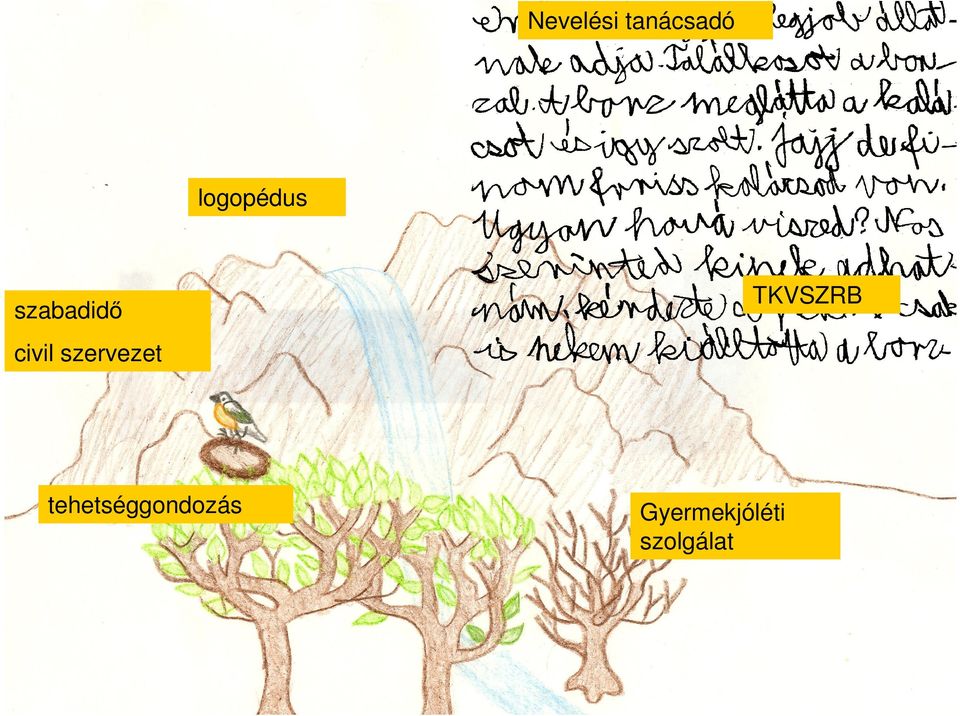 Nevelési tanácsadó
legjob állat-
nak adja. Találkosot a bor-
zal. A borz meglátta a kalá
csot és igy szolt. Jajj de fi-
nom friss kalácsod von.
Ugyan hová viszed? Nos
szerinted kinek adhat-
nám. kérdezte a csak
is nekem kiálltotta a borz
logopédus
TKVSZRB
szabadidő
civil szervezet
tehetséggondozás
Gyermekjóléti
szolgálat